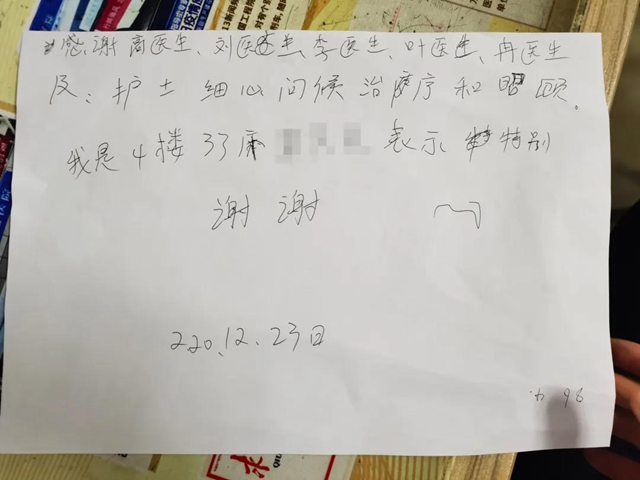 感谢商医生、刘医生、李医生、叶医生、冉医生
及:护士细心问候治疗和照顾。
我是4楼33床 表示特别
谢谢
220.12.23日
96